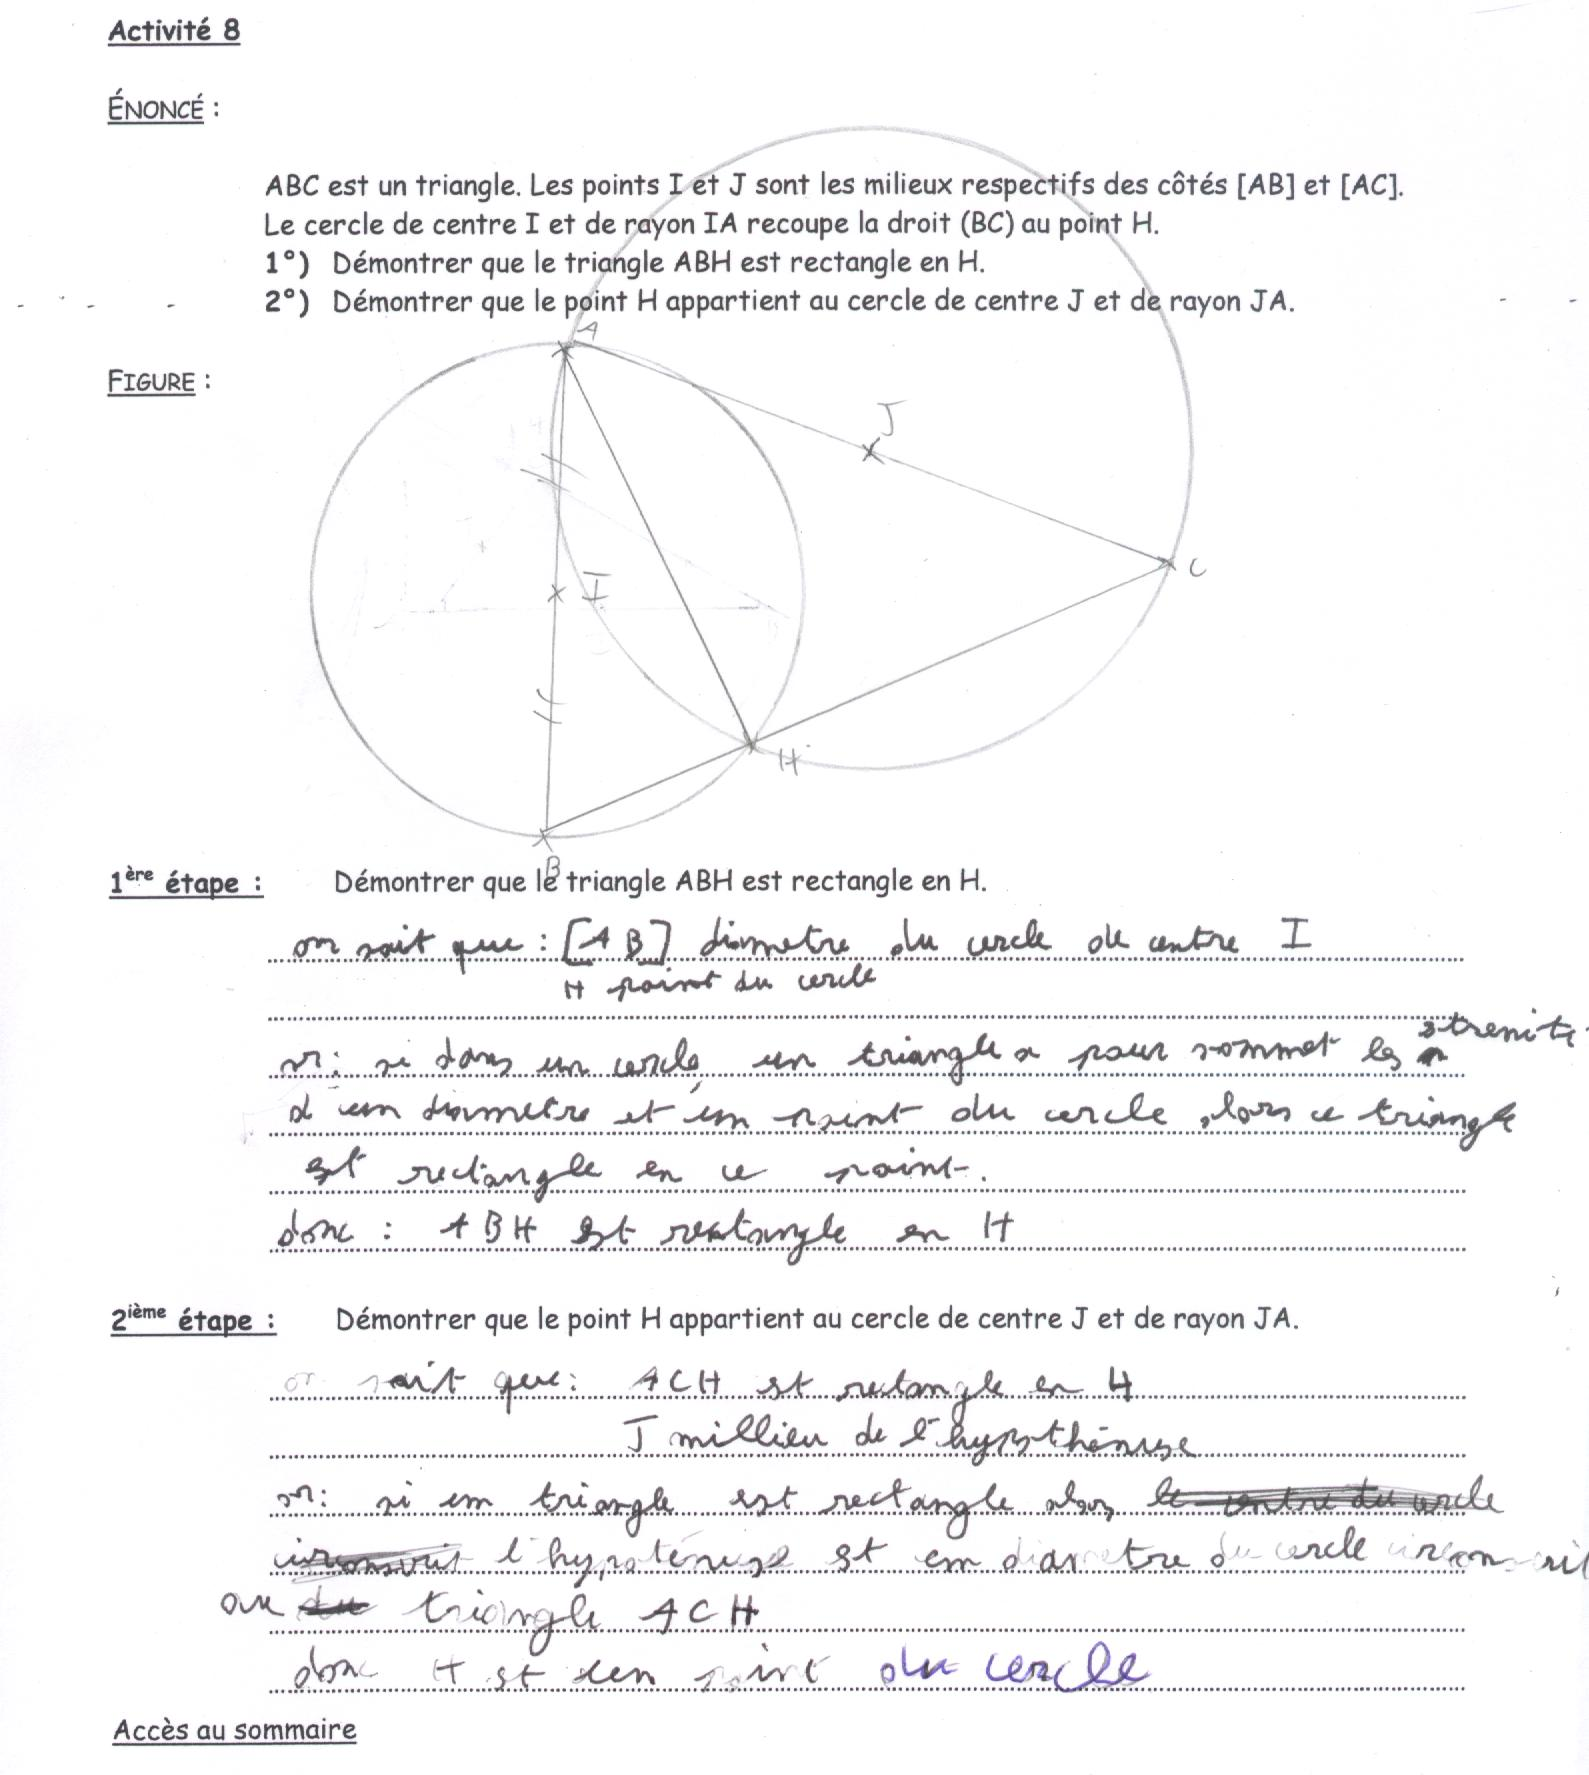 Activité 8
ÉNONCÉ :
ABC est un triangle. Les points I et J sont les milieux respectifs des côtés [AB] et [AC].
Le cercle de centre I et de rayon IA recoupe la droit (BC) au point H.
1°) Démontrer que le triangle ABH est rectangle en H.
2°) Démontrer que le point H appartient au cercle de centre J et de rayon JA.
A
FIGURE :
J
I
C
H
B
1ère étape : Démontrer que le triangle ABH est rectangle en H.
on sait que : [AB] diametre du cercle de centre I
H point du cercle
si dans un cercle un triangle a pour sommet les
d'un diametre et un point du cercle alors ce triangle
est rectangle en ce point.
donc : ABH est rectangle en H
2ième étape : Démontrer que le point H appartient au cercle de centre J et de rayon JA.
on sait que : ACH est rectangle en H
J millieu de l'hypothénuse
si un triangle est rectangle alors le centre du cercle
circonscrit l'hypoténuse est un diametre du cercle circonscrit
au du triangle ACH
donc H est un point du cercle
Accès au sommaire